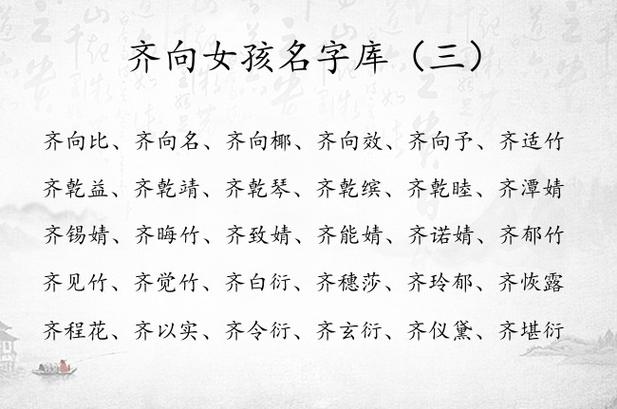 齐向女孩名字库（三）
齐向比、齐向名、齐向椰、齐向效、齐向予、齐适竹
齐乾益、齐乾靖、齐乾琴、齐乾缤、齐乾睦、齐潭婧
齐锡婧、齐晦竹、齐致婧、齐能婧、齐诺婧、齐郁竹
齐见竹、齐觉竹、齐白衍、齐穗莎、齐玲郁、齐恢露
齐程花、齐以实、齐令衍、齐玄衍、齐仪黛、齐堪衍